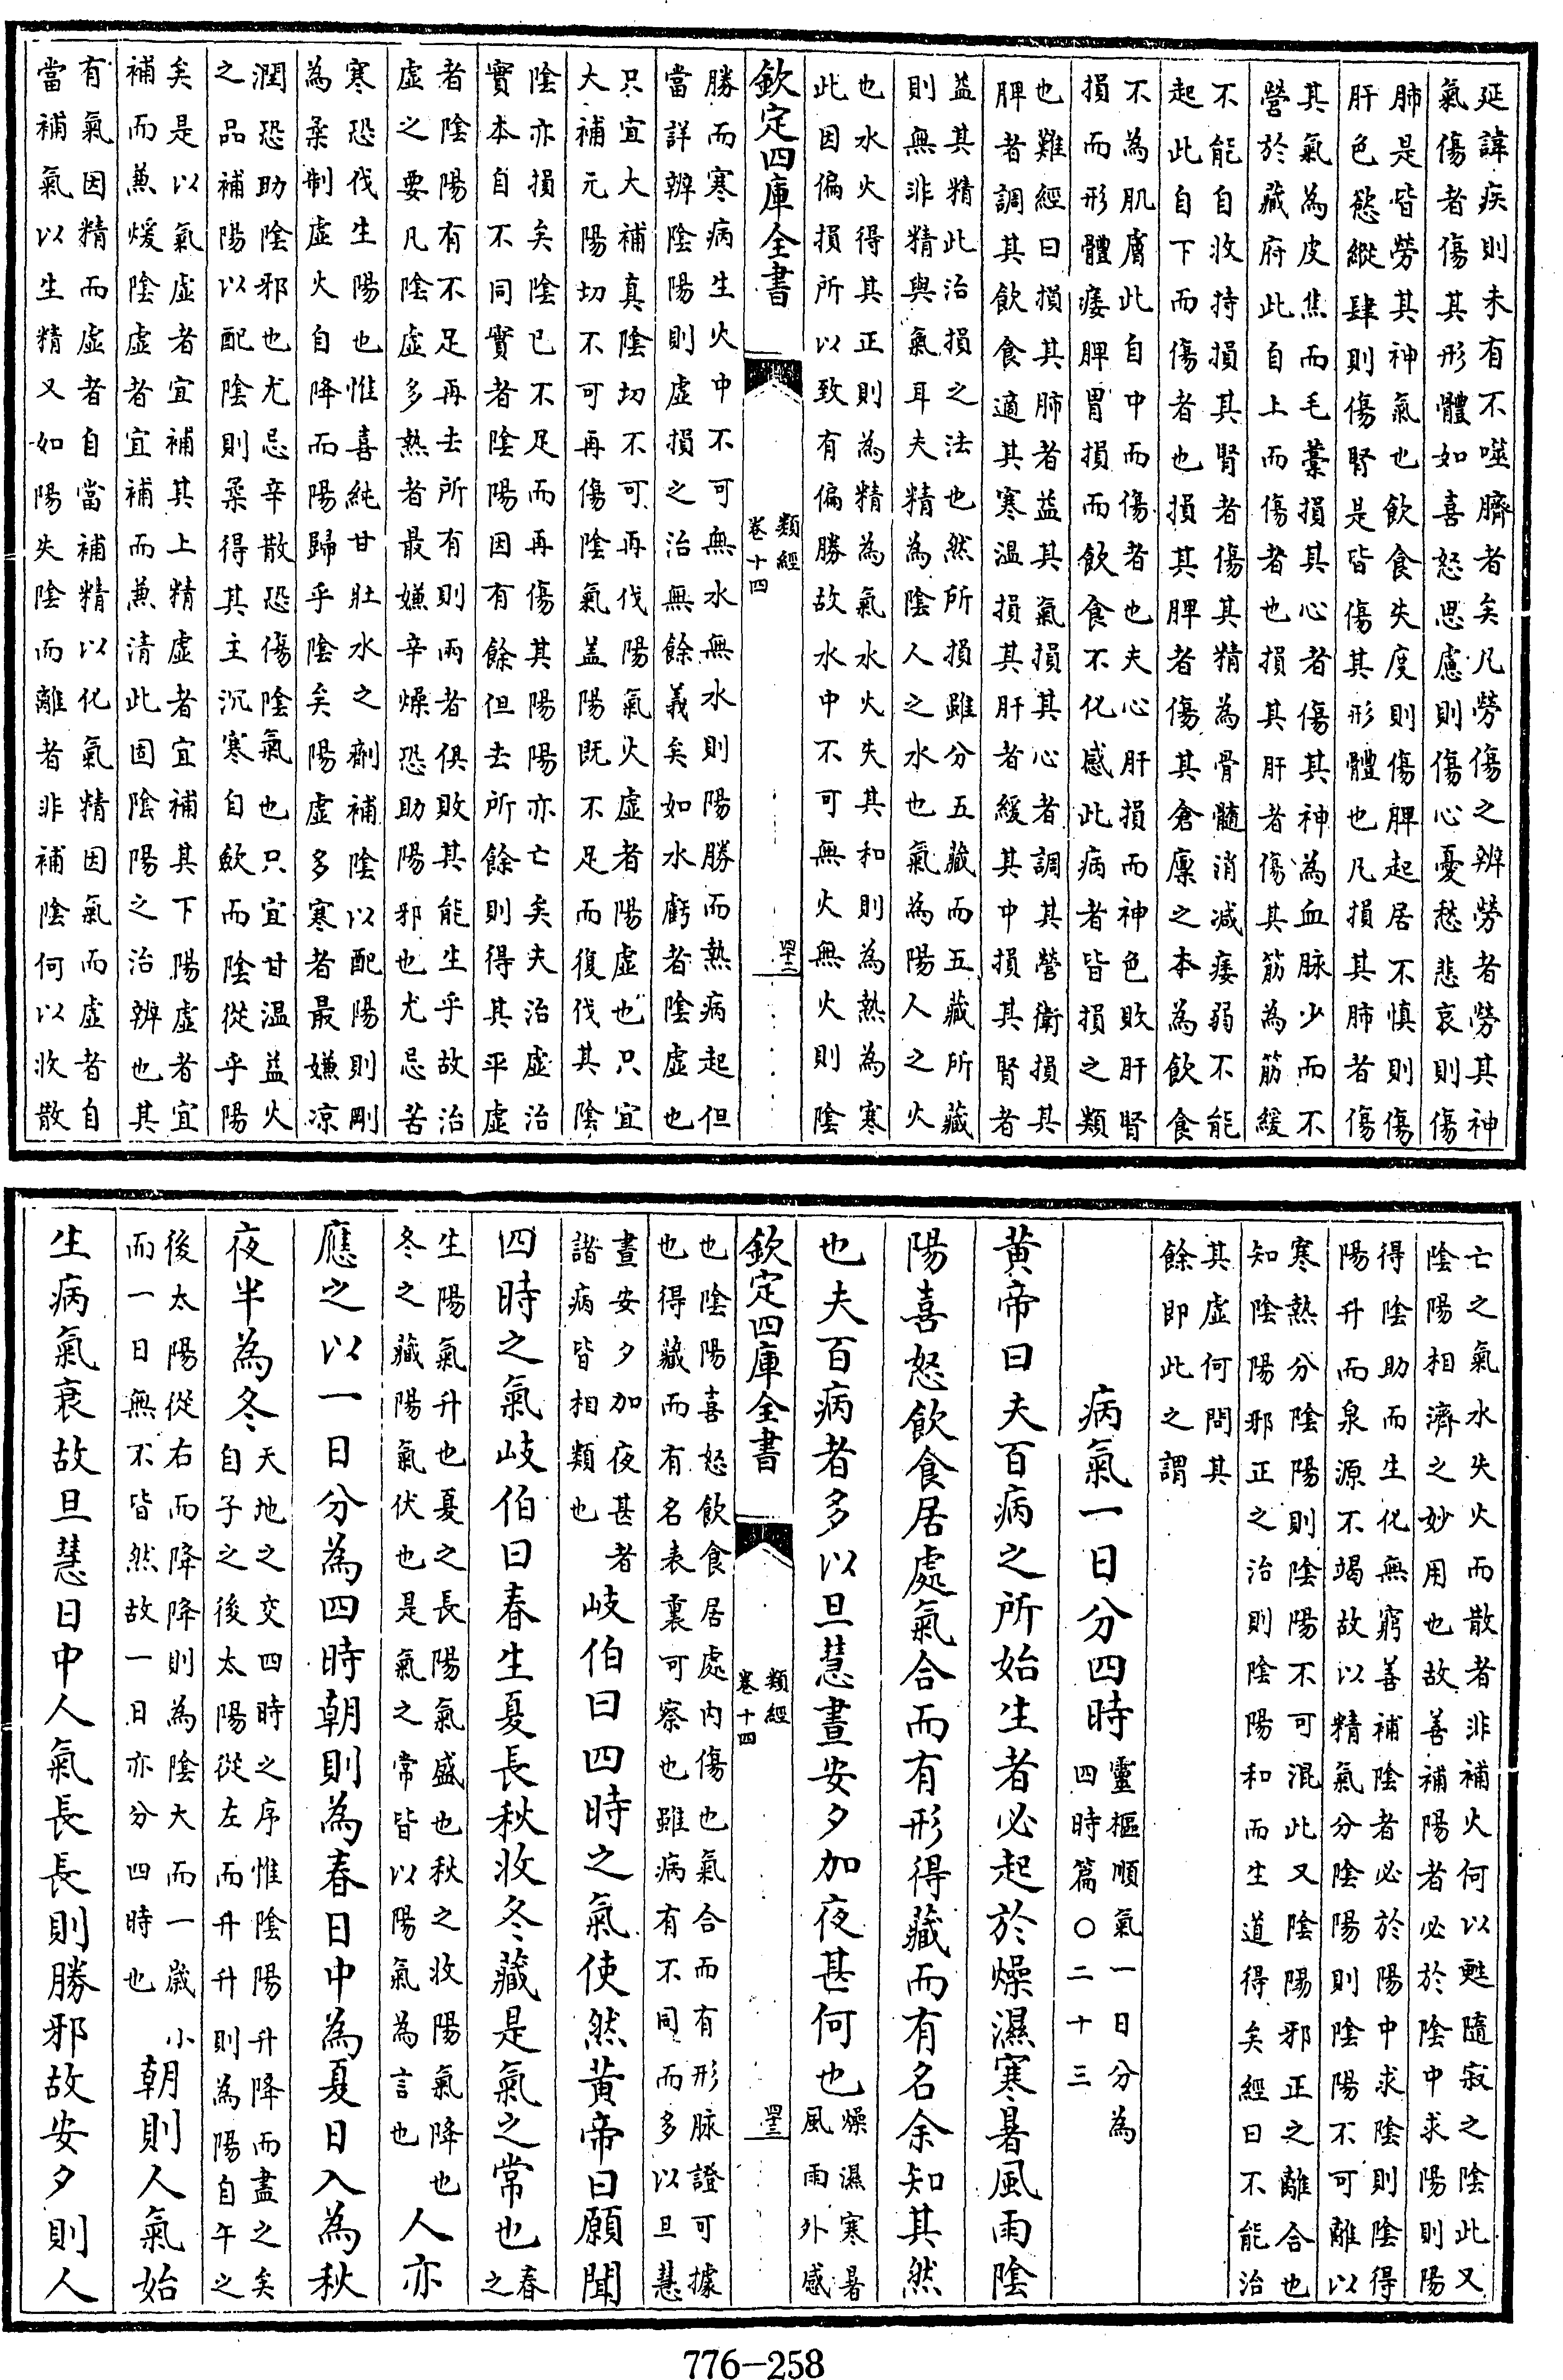 延諱疾則未有不噬臍者矣凡勞傷之辨勞者勞其神
氣傷者傷其形體如喜怒思慮則傷心憂愁悲哀則傷
肺是皆勞其神氣也飲食失度則傷脾起居不慎則傷
肝色慾縱肆則傷腎是皆傷其形體也凡損其肺者傷
其氣為皮焦而毛藁損其心者傷其神為血脉少而不
營於藏府此自上而傷者也損其肝者傷其筋為筋緩
不能自收持損其腎者傷其精為骨髓消减痿弱不能
起此自下而傷者也損其脾者傷其倉廩之本為飲食
不為肌膚此自中而傷者也夫心肝損而神色敗肝腎
損而形體痿脾胃損而飲食不化感此病者皆損之類
也難經曰損其肺者益其氣損其心者調其營衛損其
脾者調其飲食適其寒温損其肝者緩其中損其腎者
益其精此治損之法也然所損雖分五藏而五藏所藏
則無非精與氣耳夫精為陰人之水也氣為陽人之火
也水火得其正則為精為氣水火失其和則為熱為寒
此因偏損所以致有偏勝故水中不可無火無火則陰
欽定四庫全書
類經
卷十四
四十二
勝而寒病生火中不可無水無水則陽勝而熱病起但
當詳辨陰陽則虛損之治無餘義矣如水虧者陰虛也
只宜大補真陰切不可再伐陽氣火虛者陽虛也只宜
大補元陽切不可再傷陰氣盖陽既不足而復伐其陰
陰亦損矣陰已不足而再傷其陽陽亦亡矣夫治虛治
實本自不同實者陰陽因有餘但去所餘則得其平虛
者陰陽有不足再去所有則兩者俱敗其能生乎故治
虛之要凡陰虛多熱者最嫌辛燥恐助陽邪也尤忌苦
寒恐伐生陽也惟喜純甘壯水之劑補陰以配陽則剛
為柔制虛火自降而陽歸乎陰矣陽虛多寒者最嫌凉
潤恐助陰邪也尤忌辛散恐傷陰氣也只宜甘温益火
之品補陽以配陰則柔得其主沉寒自歛而陰從乎陽
矣是以氣虛者宜補其上精虛者宜補其下陽虛者宜
補而兼煖陰虛者宜補而兼清此固陰陽之治辨也其
有氣因精而虛者自當補精以化氣精因氣而虛者自
當補氣以生精又如陽失陰而離者非補陰何以收散
亡之氣水失火而散者非補火何以甦隨寂之陰此又
陰陽相濟之妙用也故善補陽者必於陰中求陽則陽
得陰助而生化無窮善補陰者必於陽中求陰則陰得
陽升而泉源不竭故以精氣分陰陽則陰陽不可離以
寒熱分陰陽則陰陽不可混此又陰陽邪正之離合也
知陰陽邪正之治則陰陽和而生道得矣經曰不能治
其虛何問其
餘即此之謂
病氣一日分四時
靈樞順氣一日分為
四時篇○二十三
黃帝曰夫百病之所始生者必起於燥濕寒暑風雨陰
陽喜怒飲食居處氣合而有形得藏而有名余知其然
也夫百病者多以旦慧晝安夕加夜甚何也
燥濕寒暑
風雨外感
欽定四庫全書
類經
卷十四
四十三
也陰陽喜怒飲食居處內傷也氣合而有形脉證可據
也得藏而有名表裏可察也雖病有不同而多以旦慧
晝安夕加夜甚者
諧病皆相類也
岐伯曰四時之氣使然黃帝曰願聞
四時之氣岐伯曰春生夏長秋收冬藏是氣之常也
春
之
生陽氣升也夏之長陽氣盛也秋之收陽氣降也
冬之藏陽氣伏也是氣之常皆以陽氣為言也
人亦
應之以一日分為四時朝則為春日中為夏日入為秋
夜半為冬
天地之交四時之序惟陰陽升降而盡之矣
自子之後太陽從左而升升則為陽自午之
後太陽從右而降降則為陰大而一歲小
而一日無不皆然故一日亦分四時也
朝則人氣始
生病氣衰故旦慧日中人氣長長則勝邪故安夕則人
776-258